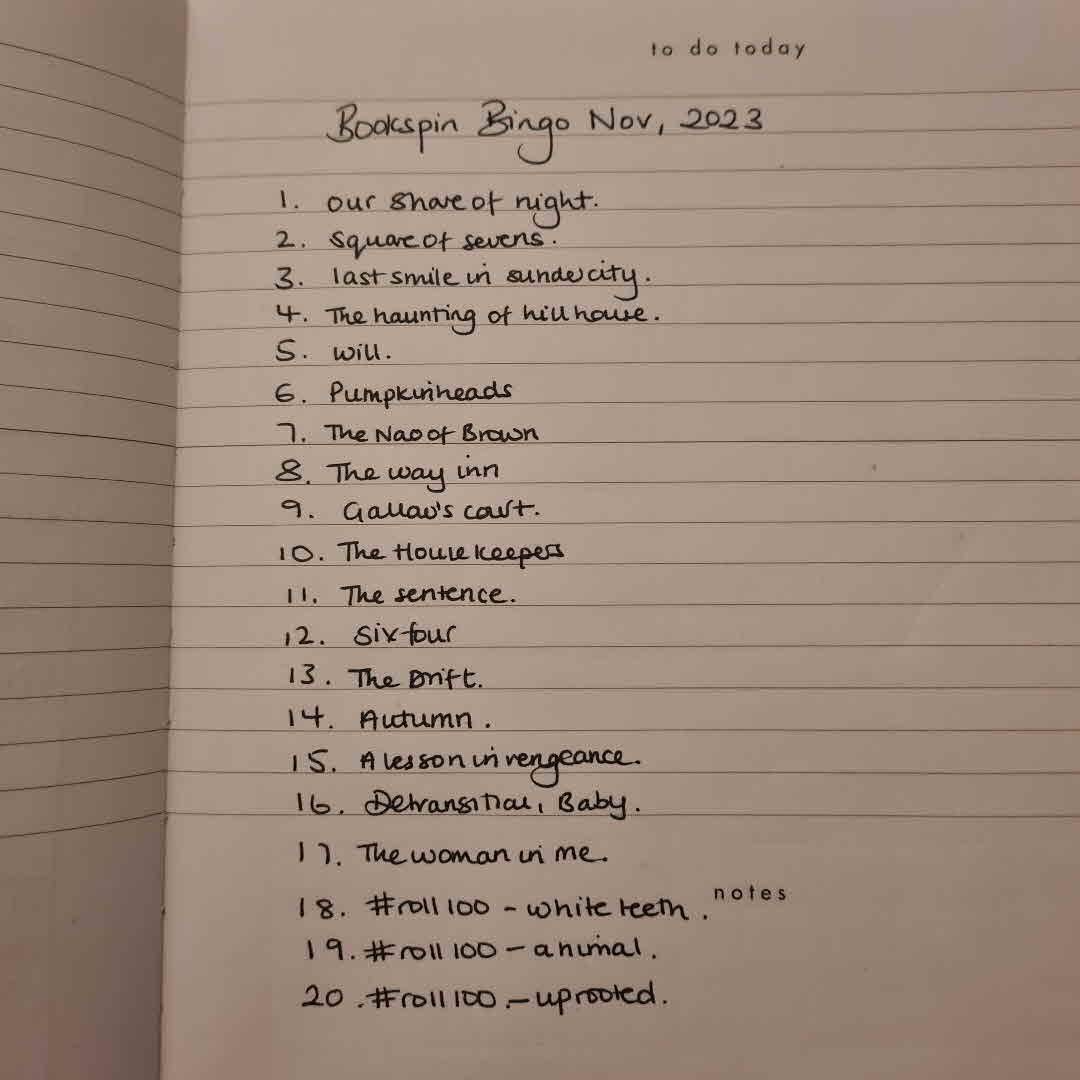 to do today
Bookspin Bingo Nov, 2023
1. our share of night.
2. square of sevens.
3. last smile in sunder city.
4. The haunting of hill house.
5. will.
6. Pumpkinheads
7. The Nao of Brown
8. The way inn
9. Gallows court.
10. The Housekeepers
11. The sentence.
12. six four
13. The Drift.
14. Autumn.
15. A lesson in vengeance.
16. Detransition, Baby.
17. The woman in me.
notes
18. #roll100 - white teeth.
19. #roll100 - animal.
20. #roll100. - uprooted.